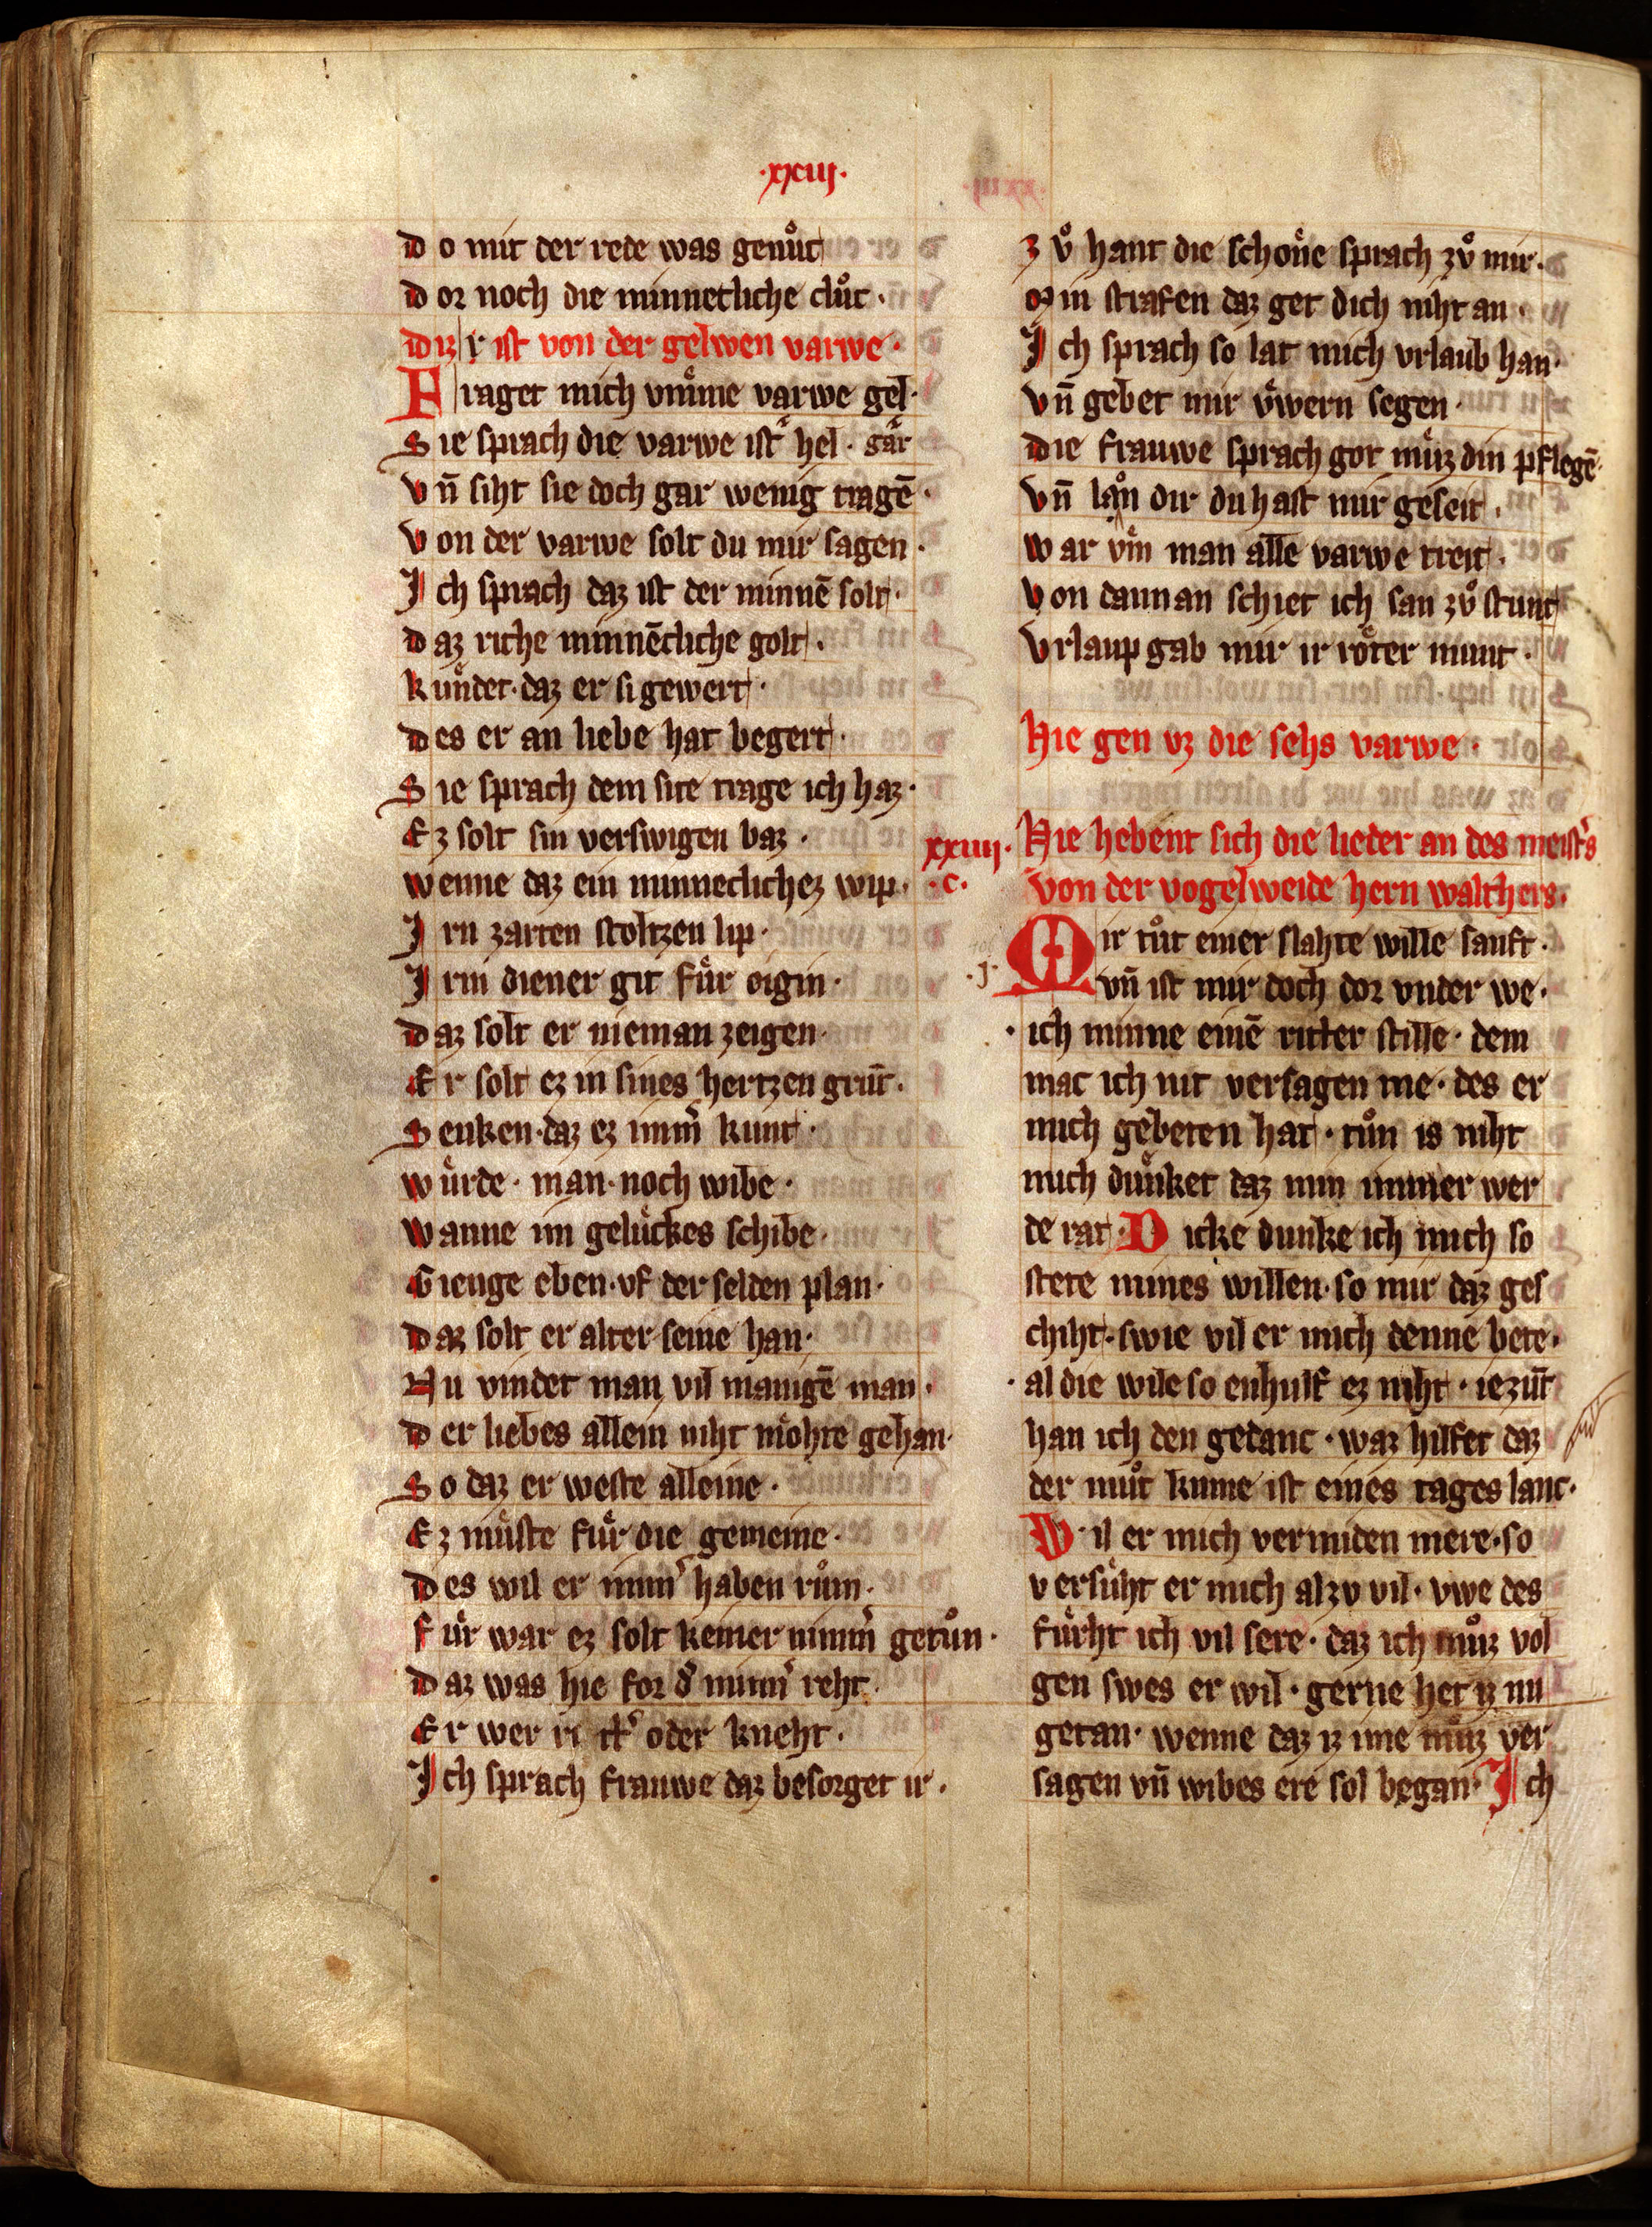 ·xxiij·
Do mit der rede was genuͦt
Dor noch die minnecliche cluͦc·
Diz ist von der gelwen varwe·
Fraget mich vmͤme varwe gel·
Sie sprach die varwe ist hel· gar
Vn̄ siht sie doch gar wenig tragē·
Von der varwe solt du mir sagen·
Ich sprach daz ist der minnē solt·
Daz riche minnēcliche golt·
Kuͤndet· daz er si gewert·
Des er an liebe hat begert·
Sie sprach dem site trage ich haz·
Ez solt sin verswigen baz·
Wenne daz ein minneclichez wip·
Irn zarten stoltzen lip·
Irm diener git fuͤr oigin·
Daz solt er nieman zeigen·
Er solt ez in sines hertzen grūt·
Senken· daz ez nimm̉ kunt·
Wuͤrde· man· noch wibe·
Wanne im geluͤckes schibe·
Gienge eben· vf der selden plan·
Daz solt er alter seine han·
Nu vindet man vil manigē man·
Der liebes allein niht moͤhte gehan·
So daz er weste alleine·
Ez muͤste fuͤr die gemeine·
Des wil er nimm̉ haben ruͦm·
Fuͤr war ez solt keiner nimm̉ getuͦn·
Daz was hie for d̉ minn̉ reht·
Er wer ritt̉ oder kneht·
Ich sprach frauwe daz besorget ir·
Zvͦ hant die schoͤne sprach zvͦ mir·
Min strafen daz get dich niht an·
Ich sprach so lat mich vrlaub han·
Vn̄ gebet mir vͤwern segen·
Die frauwe sprach got muͤz din pflegē·
Vn̄ lon dir du hast mir geseit·
War vm̄ man alle varwe treit·
Von dannan schiet ich san zvͦ stunt
Vrlaup gab mir ir roͤter munt·
Hie gen vz die sehs varwe·
xxiiij· Hie hebent sich die lieder an des meist̉s
·c· von der vogelweide hern walthers·
Mir tuͦt einer slahte wille sanft·
·j· vn̄ ist mir doch dor vnder we·
· ich minne einē ritter stille· dem
mac ich nit versagen me· des er
mich gebeten hat· tuͦn is niht
mich duͤnket daz min immer wer
de rat· Dicke dunke ich mich so
stete mines willen· so mir daz ges
chiht· swie vil er mich denne bete·
· al die wile so enhulf ez niht· iezūt
han ich den gedanc· waz hilfet daz
der muͦt kume ist eines tages lanc·
Wil er mich vermiden mere· so
versuͤht er mich alzv vil· vwe des
fuͤrht ich vil sere· daz ich muͦz vol
gen swes er wil· gerne het iz nu
getan· wenne daz iz ime muͦz ver
sagen vn̄ wibes ere sol began· Ich